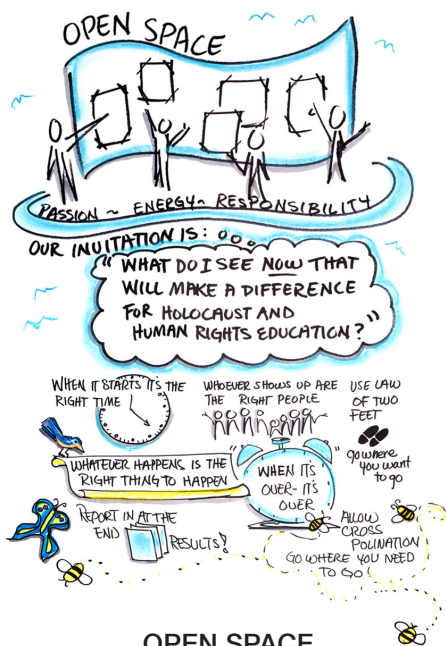 OPEN SPACE
PASSION ~ ENERGY ~ RESPONSIBILITY
OUR INVITATION IS:
"WHAT DO I SEE NOW THAT
WILL MAKE A DIFFERENCE
FOR HOLOCAUST AND
HUMAN RIGHTS EDUCATION?"
WHEN IT STARTS IT'S THE
RIGHT TIME
WHOEVER SHOWS UP ARE
THE RIGHT PEOPLE
USE LAW
OF TWO
FEET
go where
you want
to go
WHATEVER HAPPENS IS THE
RIGHT THING TO HAPPEN
WHEN IT'S
OVER - IT'S
OVER
REPORT IN AT THE
END
RESULTS!
ALLOW
CROSS
POLINATION
GO WHERE YOU NEED
TO GO
OPEN SPACE